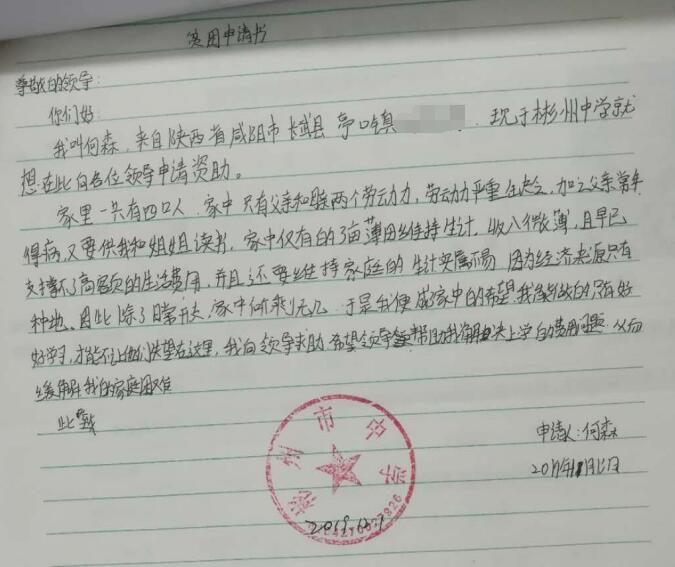 贫困申请书
尊敬的领导:
你们好:
我叫何森,来自陕西省咸阳市长武县亭口镇 现于彬州中学就
想在此向各位领导申请资助。
家里一共有四口人,家中只有父亲和母亲两个劳动力,劳动力严重 加之父亲常年
得病,又要供我和姐姐读书,家中仅有的3亩薄田维持生计,收入微薄,且早已
支撑不了高额的生活费用,并且还要维持家庭的生计实属不易,因为经济来源只有
种地,因此除了日常开支,家中所剩无几,于是我便成了家中的希望,我能做的只有好
好学习,才能不让他们失望在这里,我向领导求助,希望领导能帮助我 解决上学的费用问题,从而
缓解我的家庭困难
此致
申请人:何森
彬州市中学
2019.